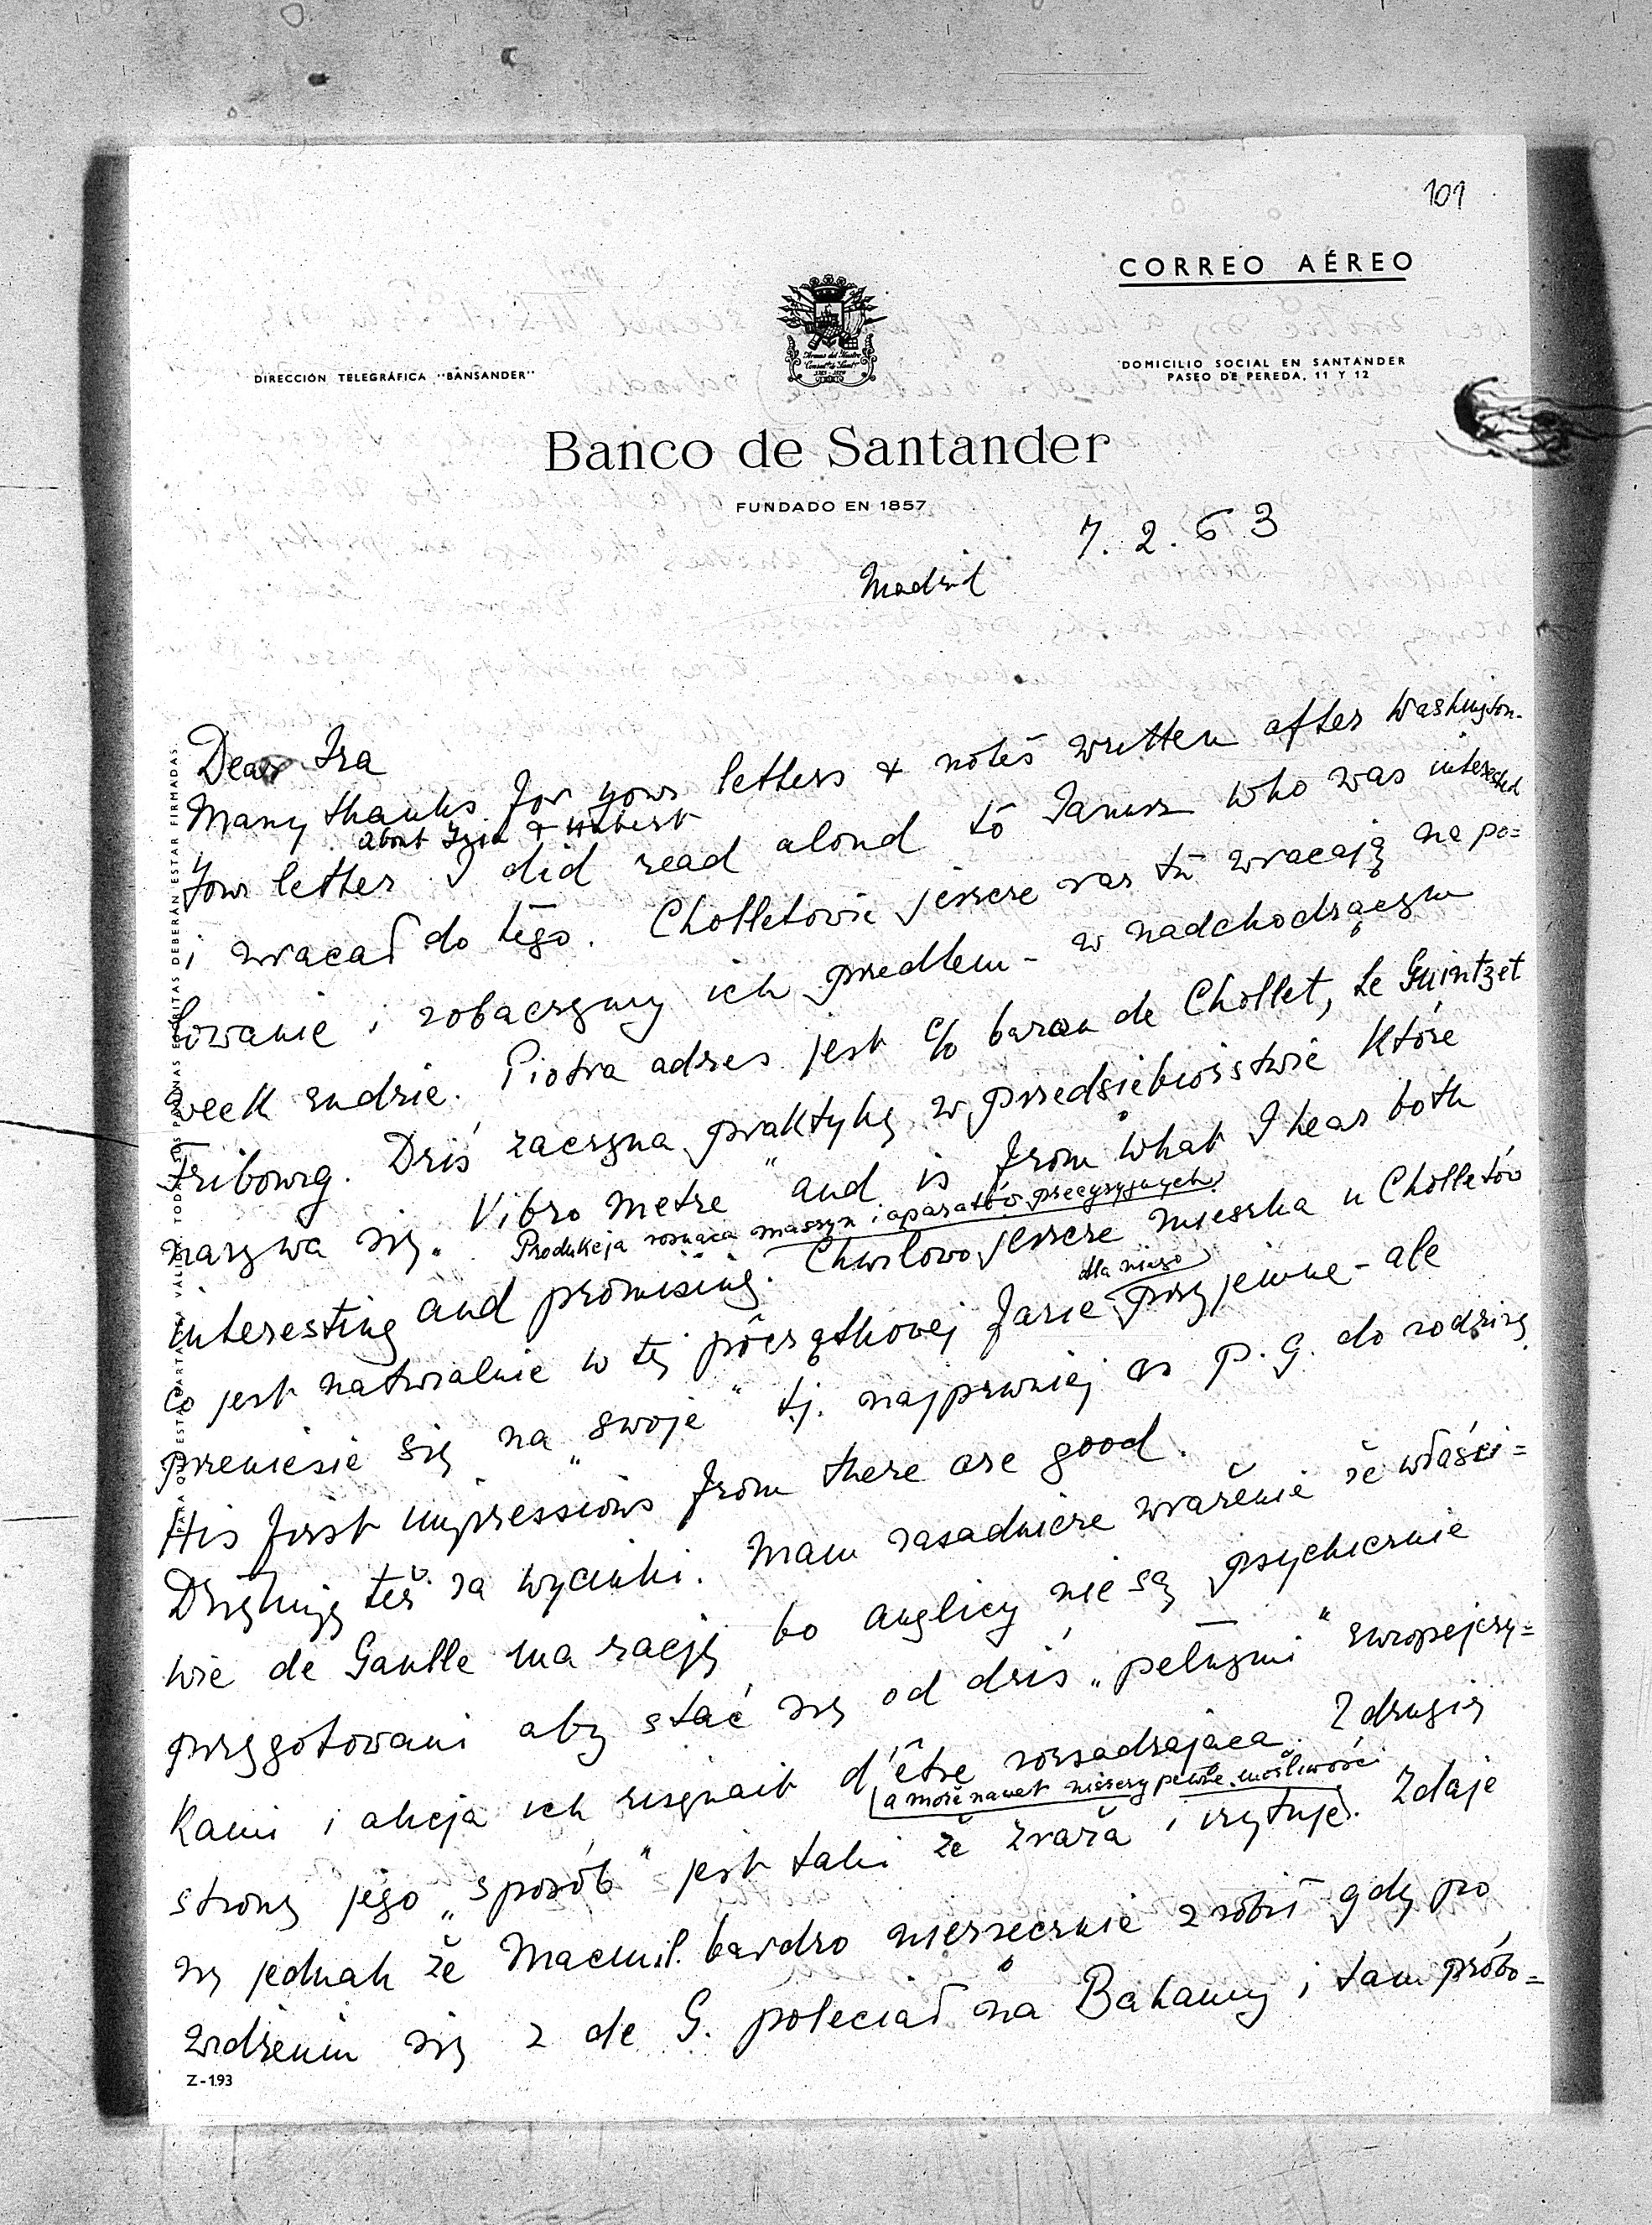 101
CORREO AÉREO
DIRECCIÓN TELEGRÁFICA "BANSANDER"
DOMICILIO SOCIAL EN SANTANDER
PASEO DE PEREDA, 11 Y 12
Banco de Santander
FUNDADO EN 1857
7. 2. 63
Madrid
Dear Ira
Many thanks for your letters & notes written after Washington.
about &
Your letter I did read aloud to Janusz who was interested
i wracał do tego. Cholletowie jeszcze raz tu wracają na po=
lowanie i zobaczymy ich przedtem - w nadchodzącym
week endzie. Piotra adres jest c/o baron de Chollet, Le Guintzet
Fribourg. Dziś zaczyna praktykę w przedsiębiorstwie które
nazywa się „Vibro Metre" and is from what I hear both
Produkcja maszyn i aparatów precyzyjnych
interesting and promising. Chwilowo jeszcze mieszka u Cholletów
dla niego
co jest naturalnie w tej początkowej fazie przyjemne - ale
przeniesie się na „swoje" t.j. najpewniej as p.g. do rodziny
His first impressions from there are good.
Dziękuję też za wycinki. Mam zasadnicze wrażenie że właści=
wie de Gaulle ma rację bo anglicy nie są psychicznie
przygotowani aby stać się od dziś „pełnymi" europejczy=
kami i akcja ich risquait d'être rozsadzająca. Z drugiej
a może nawet niszczy pewne możliwości
strony jego „sposób" jest taki że zraża i irytuje. Zdaje
się jednak że Macmil. bardzo niezręcznie zrobił gdy po
widzeniu się z de G. poleciał na Bahamy i tam próbo=
Z-193